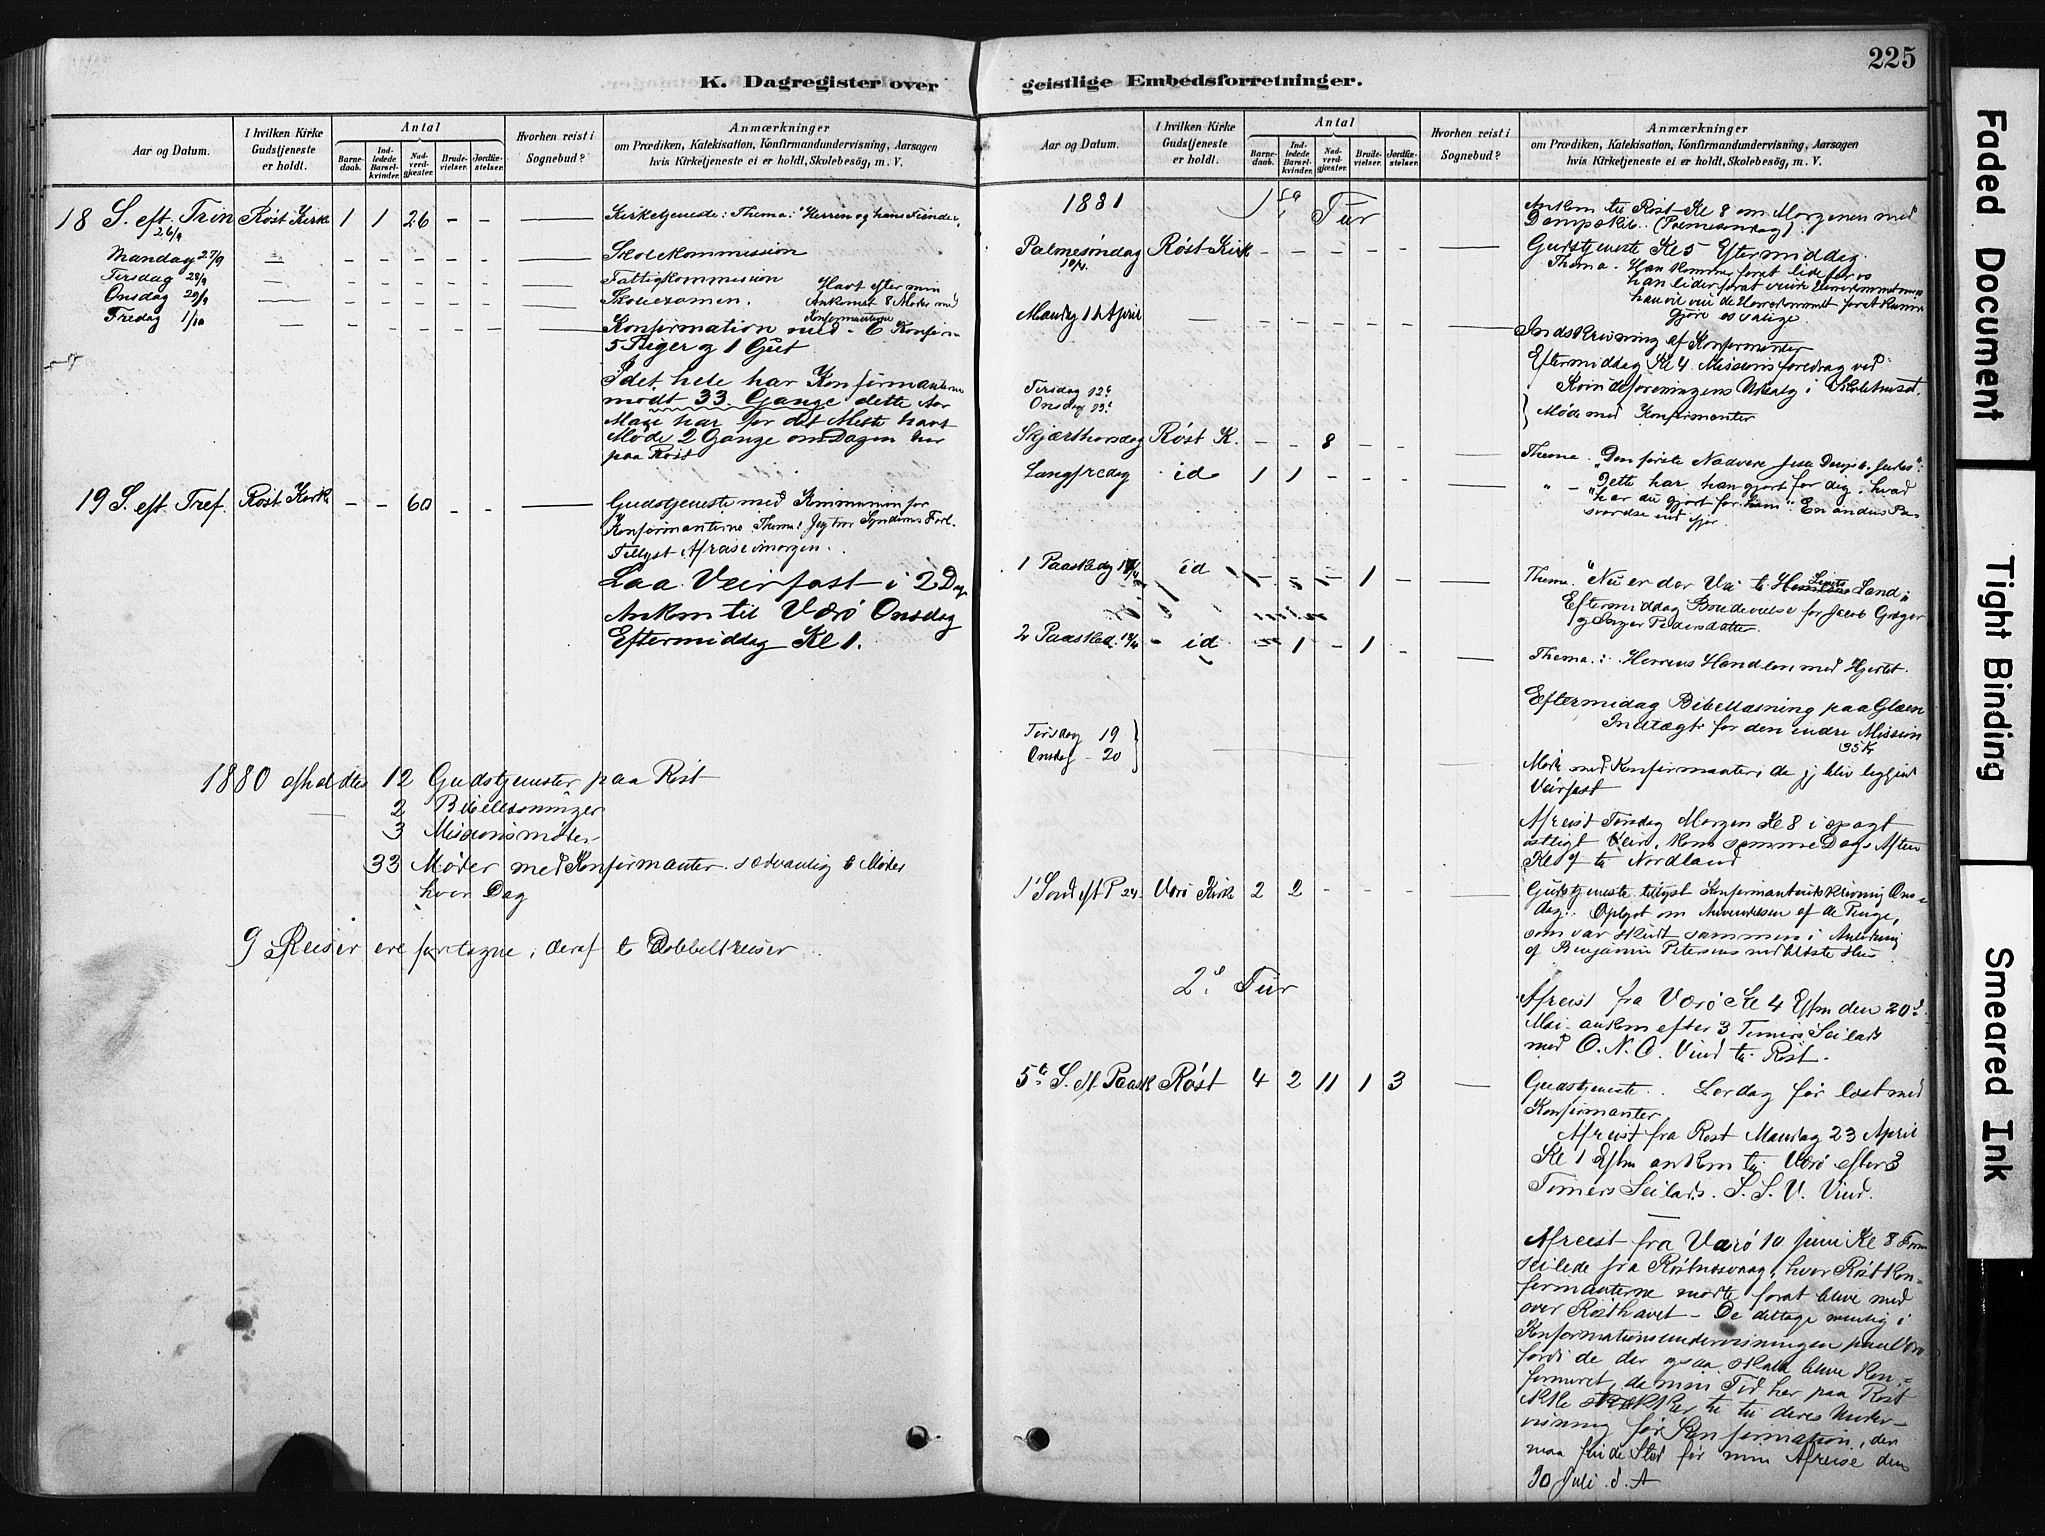 K. Dagregister over
Aar og Datum.
I hvilken Kirke Gudstjeneste er holdt.
Antal
Barnedaab.
Indledede Barselkvinder.
Nadverdgjester.
Brudevielser.
Jordfæstelser.
Hvorhen reist i Sognebud?
Anmærkninger
om Prædiken, Katekisation, Konfirmandundervisning, Aarsagen
hvis Kirketjeneste ei er holdt, Skolebesög, m. V.
18 S. eft. Trin 26/9 Røst Kirke 1 1 26 - - Kirketjeneste: Thema: Herren og hans Fiender.
Mandag 27/9 Skolekommission
Tirsdag 28/9 Fattigkommission
Onsdag 29/9 Skoleexamen. Havt efter min Ankomst 8 Møder med Konfirmanterne
Fredag 1/10 Konfirmation med 6 Konfirm
5 Piger og 1 Gut
I det hele har Konfirmanterne
mødt 33 Gange dette Aar
har for det Meste havt
Møde 2 Gange om Dagen her
paa Røst
19 S. eft. Tref. Røst Kirke - - 60 - - Gudstjeneste med Kommunion for
Konfirmanterne Thema: Jeg tror Syndernes Forl.
Tillyst Afreise imorgen.
Laa Veirfast i 2 Dage
Ankom til Værø Onsdag
Eftermiddag Kl 1.
1880 afholdtes 12 Gudstjenester paa Røst
2 Bibellæsninger
3 Missionsmøter
33 Møder med Konfirmanter. sædvanlig to Møder
hver Dag
9 Reiser ere foretagne, deraf to Dobbeltreiser
225
geistlige Embedsforretninger.
Aar og Datum.
I hvilken Kirke Gudstjeneste er holdt.
Antal
Barnedaab.
Indledede Barselkvinder.
Nadverdgjester.
Brudevielser.
Jordfæstelser.
Hvorhen reist i Sognebud?
Anmærkninger
om Prædiken, Katekisation, Konfirmandundervisning, Aarsagen
hvis Kirketjeneste ei er holdt, Skolebesög, m. V.
1881 1ste Tur
Ankom til Røst Kl 8 om Morgenen med
Dampskib. (Palmesøndag).
Palmesøndag 10/4. Røst Kirk - - - - - Gudstjeneste Kl 5 Eftermiddag.
Thema. Han kommer forat lide for os
han lider forat vinde
han vil
gjøre os salige.
Mandag 11 April Indskrivning af Konfirmanter
Eftermiddag Kl 4. Missionsforedrag ved
Kvindeforeningens Udsalg i Skolehuset.
Tirsdag 12te
Onsdag 13de
Møde med Konfirmanter
Skjærthorsdag Røst K. - - 8 - - Thema. Den første Nadvere
Langfredag id 1 1 - - - " - "Dette har han gjort for dig; hvad
har du gjort for ham"
1 Paaskedag 17/4 id - - - 1 - Thema. "Nu er der Vei til Land"
Eftermiddag Brudevielse for Jacob
og Inger Pedersdatter
2 Paasked. 18/4 - id - 1 - 1 - Thema.: Herrens Handlen med Hjertet.
Eftermidag Bibellæsning paa Glæen
Indtægt for den indre Mission
35 Kr
Tirsdag 19
Onsdag - 20
Møde med Konfirmanter, da jeg blev liggende
Veirfast
Afreist Torsdag Morgen Kl 8 i spagt
østligt Veir, kom samme Dags Aften
Kl 9 til Nordland
1 Sond eft P 24. Værø Kirke 2 2 - - - Gudstjeneste tillyst Konfirmantindskrivning Ons-
dag. Oplyst om Anvendelsen af de Penge,
som var skudt sammen i Anledning
af Benjamin Petersens nedblæste Hus
2den Tur
Afreist fra Værø Kl 4 Eftm den 20de
Mai. ankom efter 3 Timers Seilads
med O.N.O. Vind til Røst.
5te S. eft. Paask Røst 4 2 11 1 3 Gudstjeneste. Lørdag før læst med
Konfirmanter
Afreist fra Røst Mandag 23 April
Kl 1 Eftm ankom til Værø efter 3
Timers Seilads. S. S. V. Vind.
Afreist fra Værø 10 Juni Kl 8 Form
seilede fra Røstnesvaag, hvor Røst Kon-
firmanterne mødte forat blive med
over Røsthavet - De deltage nemlig i
Konfirmationsundervisningen paa Værø
fordi de der ogsaa skal blive Kon-
firmeret, da min Tid her paa Røst
ikke strækker til til deres Under-
visning før Konfirmation, der
maa finde Sted før min Afreise den
30 Juli d. A
Faded Document
Tight Binding
Smeared Ink